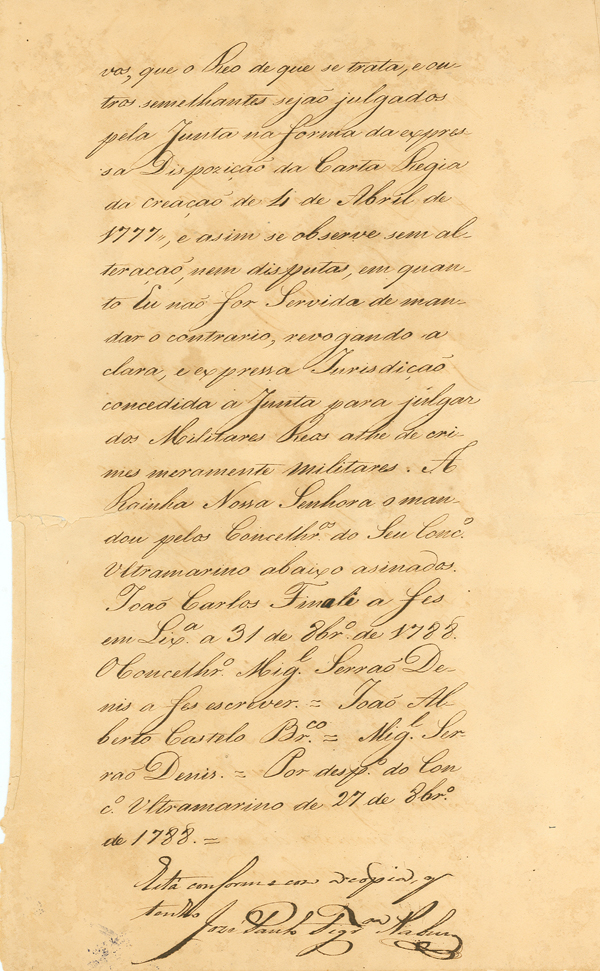 vos, que o Reo de que se trata, e ou-
tros semelhantes sejaõ julgados
pela Junta na forma da expres-
sa Dispoziçaõ da Carta Regia
da creaçaõ de 4 de Abril de
1777,, e asim se observe sem al-
teraçaõ, nem disputas, em quan-
to Eu naõ for Servida de man-
dar o contrario, revogando a
clara, e expressa Jurisdiçaõ
concedida a Junta para julgar
dos Militares Reos athe de cri-
mes meramente militares. A
Rainha Nossa Senhora o man-
dou pelos Concelhr.os do Seu Conc.o
Ultramarino abaixo asinados.
Joaõ Carlos Finali a fes
em Lix.a a 31 de 8br.o de 1788.
O Concelhr.o Mig.l Serraõ De-
nis a fes escrever. = Joaõ Al-
berto Castelo Br.co = Mig.l Ser-
raõ Denis. = Por desp.o do Con
c.o Ultramarino de 27 de 8br.o
de 1788. =
Está conforme com a copia, q
tenho
Joze Paulo